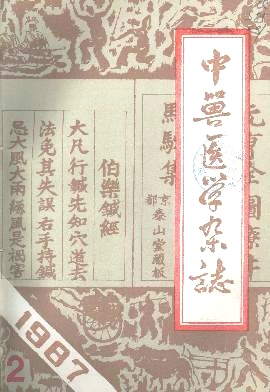 中兽医学杂誌
元亨全圖療牛
馬駝集
京都泰山堂藏板
伯樂鍼經
大凡行鍼先知穴道去
法免其失誤右手持鍼
忌大風大雨緣風是禍害
1987
2